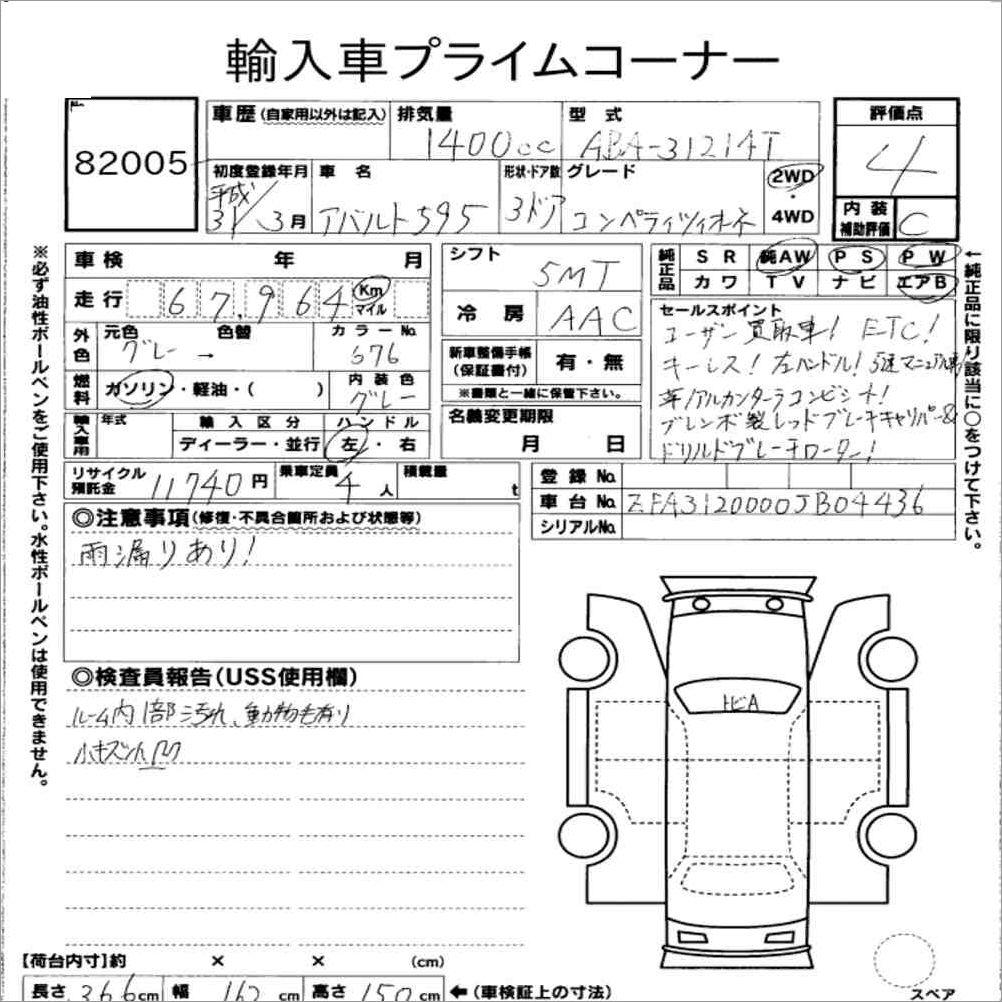 輸入車プライムコーナー
82005
車歴 (自家用以外は記入) 排気量 型式 評価点
1400cc ABA-31214T 4
初度登録年月 車名 形状・ドア数 グレード 2WD・4WD
平成31/3月 アバルト595 3ドア コンペティツィオーネ
内装補助評価 C
車検 年 月 シフト 5MT
純正品 SR 純AW PS PW
カワ TV ナビ エアB
走行 67,964 Km マイル
冷房 AAC
セールスポイント
ユーザー買取車! ETC!
キーレス! 左ハンドル! 5速マニュアル車
革/アルカンターラコンビシート!
ブレンボ製レッドブレーキキャリパー&
ドリルドブレーキローター!
外色 元色 色替 カラーNo.
グレー → 676
新車整備手帳(保証書付) 有・無
※書類と一緒に保管下さい。
燃料 ガソリン・軽油・( ) 内装色 グレー
名義変更期限 月 日
輸入車用 年式 輸入区分 ハンドル
ディーラー・並行 左・右
リサイクル預託金 11740円 乗車定員 4人 積載量 t
登録No.
車台No. ZFA3120000JB04436
シリアルNo.
◎注意事項(修復・不具合箇所および状態等)
雨漏りあり!
◎検査員報告(USS使用欄)
ルーム内1部汚れ、動物毛有り
小キズ小凹
トビA
【荷台内寸】約 × × (cm)
長さ 366cm 幅 162cm 高さ 150cm ←(車検証上の寸法)
スペア
※必ず油性ボールペンをご使用下さい。水性ボールペンは使用できません。
←純正品に限り該当に○をつけて下さい。